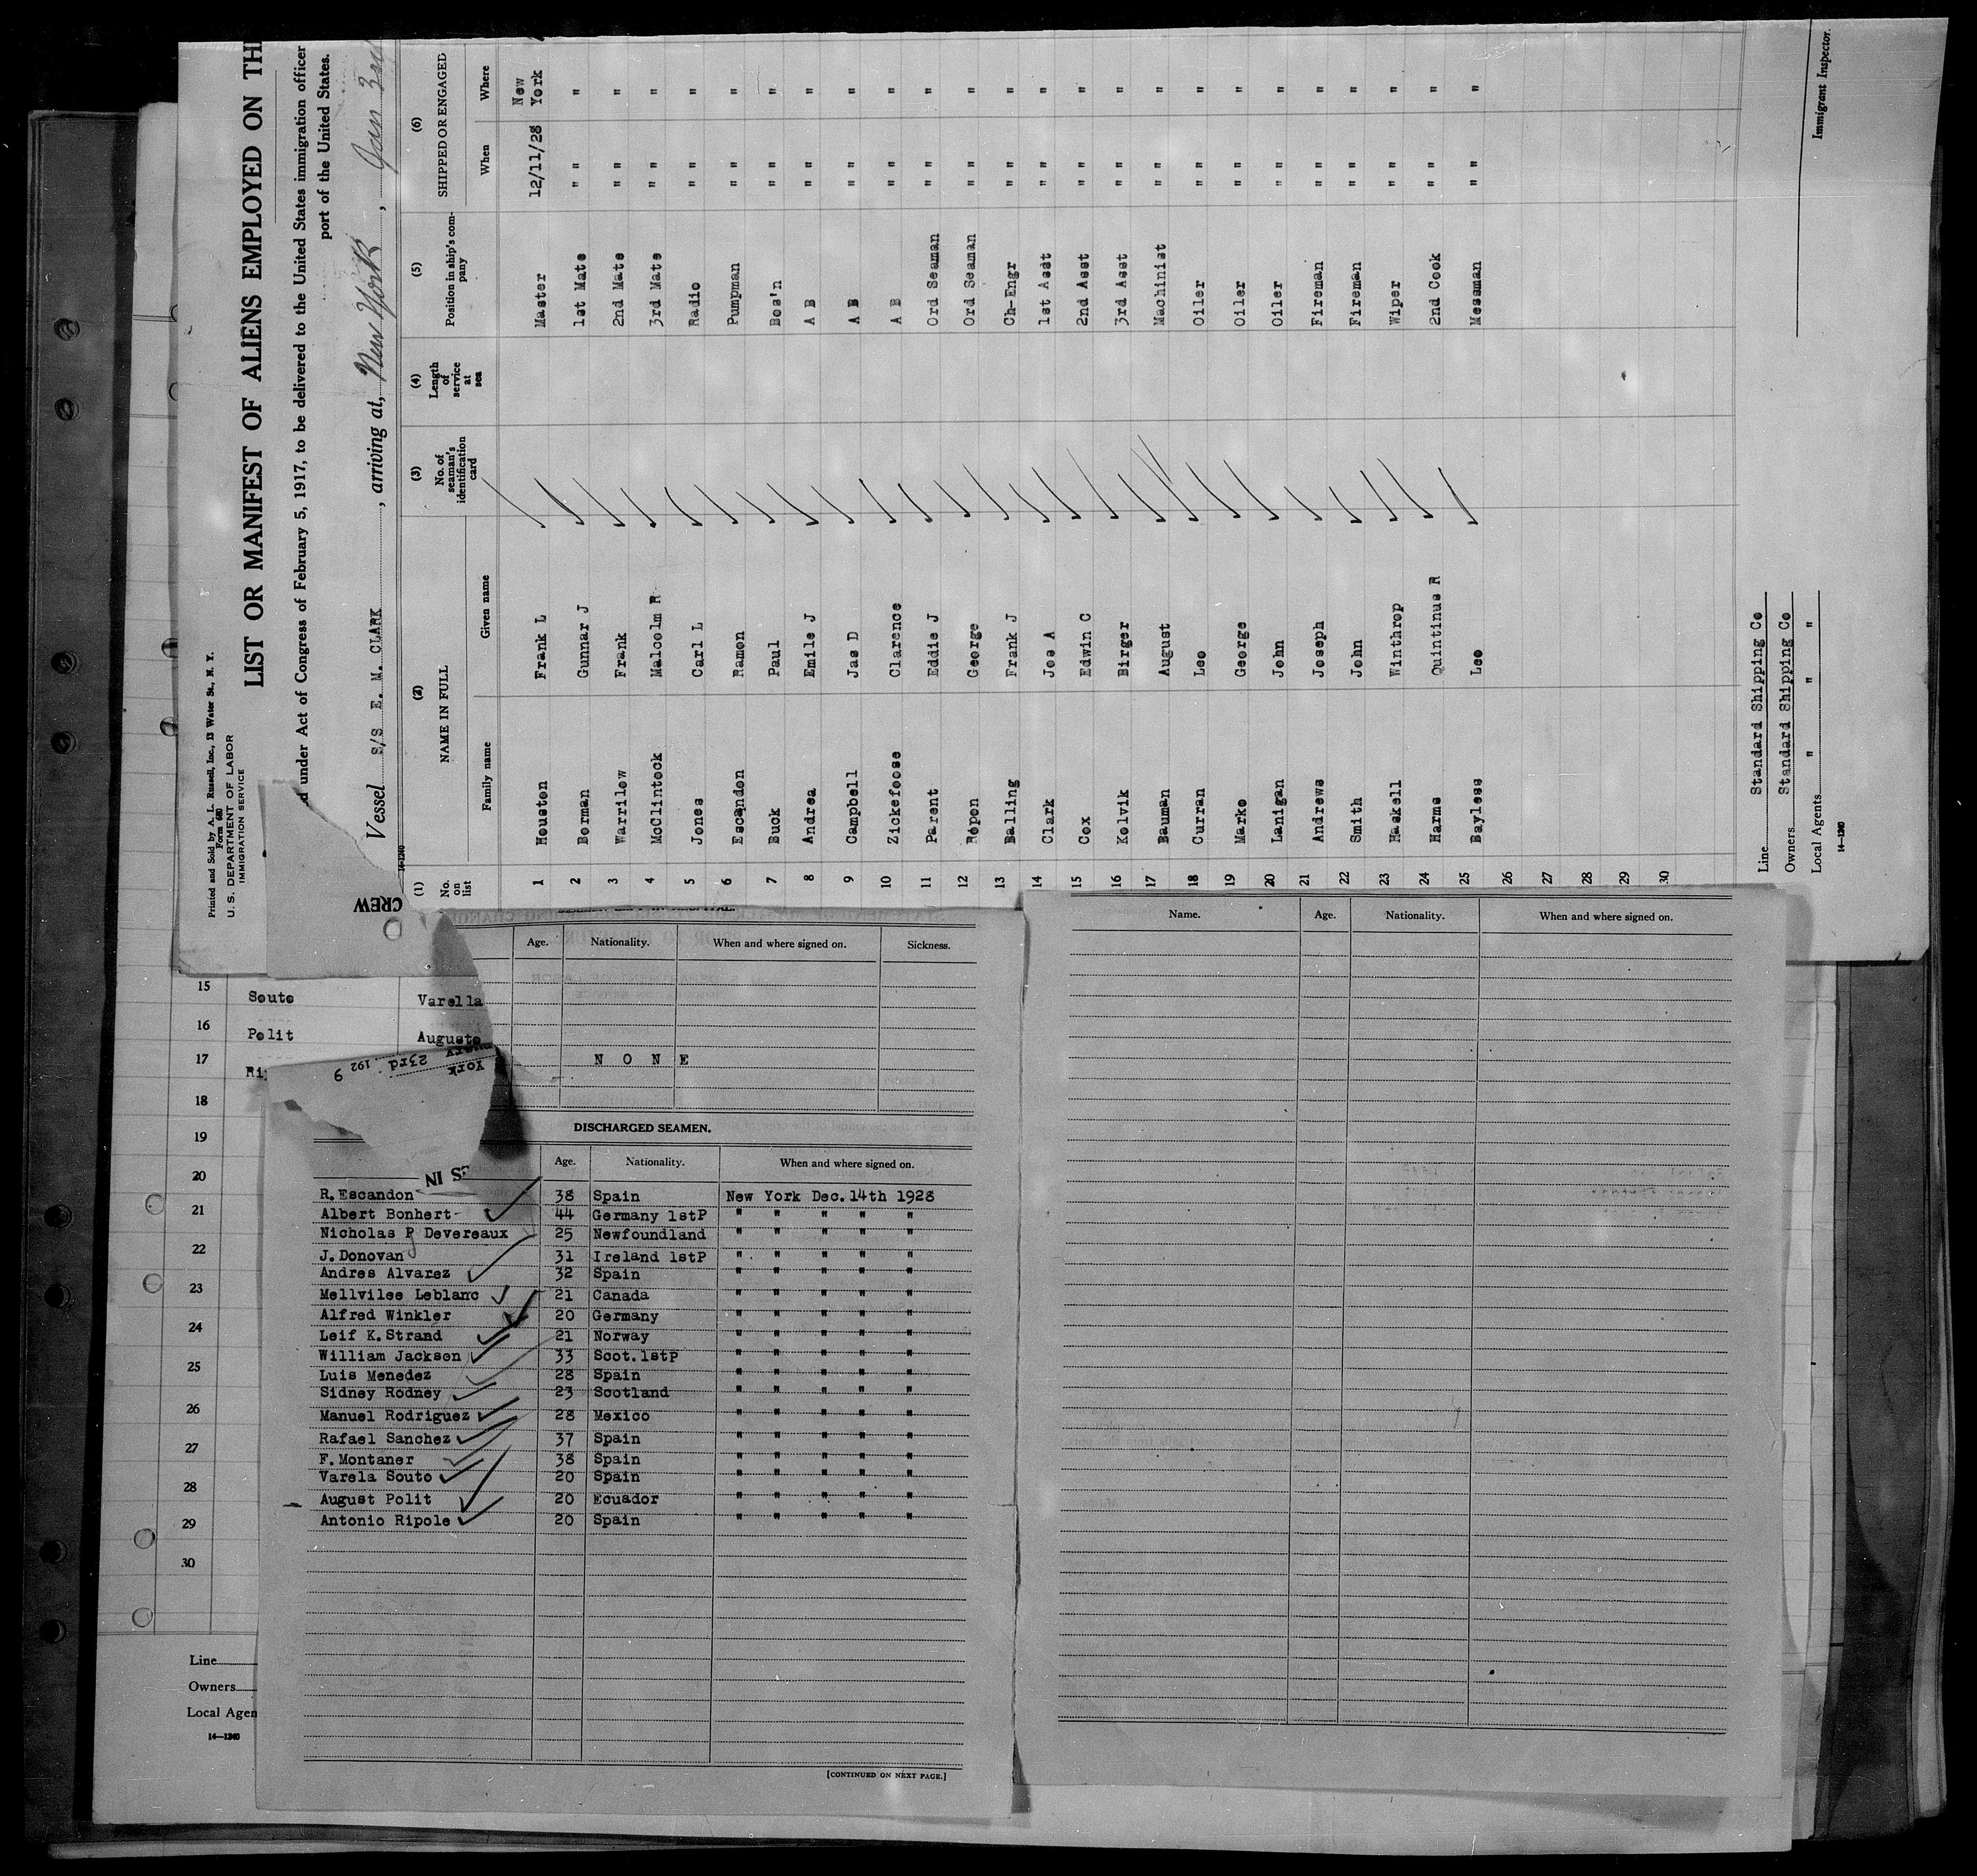 Printed and Sold by A. L. Russell, Inc., 13 Water St., N. Y.
Form 680
U. S. DEPARTMENT OF LABOR
IMMIGRATION SERVICE
LIST OR MANIFEST OF ALIENS EMPLOYED ON TH
under Act of Congress of February 5, 1917, to be delivered to the United States immigration officer
port of the United States.
Vessel S/S E. M. CLARK, arriving at, New York, Jan 3rd
14-1240
(1) (2) (3) (4) (5) (6)
No. on list NAME IN FULL No. of seaman's identification card Length of service at sea Position in ship's company SHIPPED OR ENGAGED
Family name Given name When Where
1 Houston Frank L Master 12/11/28 New York
2 Borman Gunnar J 1st Mate " " "
3 Warrilow Frank 2nd Mate " " "
4 McClintock Malcolm R 3rd Mate " " "
5 Jones Carl L Radio " " "
6 Escandon Ramon Pumpman " " "
7 Buck Paul Bos'n " " "
8 Andrea Emile J A B " " "
9 Campbell Jas D A B " " "
10 Zickefoose Clarence A B " " "
11 Parent Eddie J Ord Seaman " " "
12 Repon George Ord Seaman " " "
13 Balling Frank J Ch-Engr " " "
14 Clark Jos A 1st Asst " " "
15 Cox Edwin C 2nd Asst " " "
16 Kolvik Birger 3rd Asst " " "
17 Bauman August Machinist " " "
18 Curran Leo Oiler " " "
19 Marko George Oiler " " "
20 Lanigan John Oiler " " "
21 Andrews Joseph Fireman " " "
22 Smith John Fireman " " "
23 Haskell Winthrop Wiper " " "
24 Harms Quintinus R 2nd Cook " " "
25 Bayless Leo Messman " " "
26
27
28
29
30
Line Standard Shipping Co
Owners Standard Shipping Co
Local Agents " " "
14-1240
Immigrant Inspector.
CREW
Age. Nationality. When and where signed on. Sickness.
N O N E
15 Souto Varella
16 Polit Augusto
17
18
19
20
21
22
23
24
25
26
27
28
29
30
Line
Owners
Local Agen
14-1240
York
23rd. 192 9
ES IN
DISCHARGED SEAMEN.
Age. Nationality. When and where signed on.
R. Escandon 38 Spain New York Dec. 14th 1928
Albert Bonhert 44 Germany 1stP " " " " "
Nicholas P Devereaux 25 Newfoundland " " " " "
J. Donovan 31 Ireland 1stP " " " " "
Andres Alvarez 32 Spain " " " " "
Mellvilee Leblanc 21 Canada " " " " "
Alfred Winkler 20 Germany " " " " "
Leif K. Strand 21 Norway " " " " "
William Jackson 33 Scot. 1stP " " " " "
Luis Menedez 28 Spain " " " " "
Sidney Rodney 23 Scotland " " " " "
Manuel Rodriguez 28 Mexico " " " " "
Rafael Sanchez 37 Spain " " " " "
F. Montaner 38 Spain " " " " "
Varela Souto 20 Spain " " " " "
August Polit 20 Ecuador " " " " "
Antonio Ripole 20 Spain " " " " "
[CONTINUED ON NEXT PAGE.]
Name. Age. Nationality. When and where signed on.